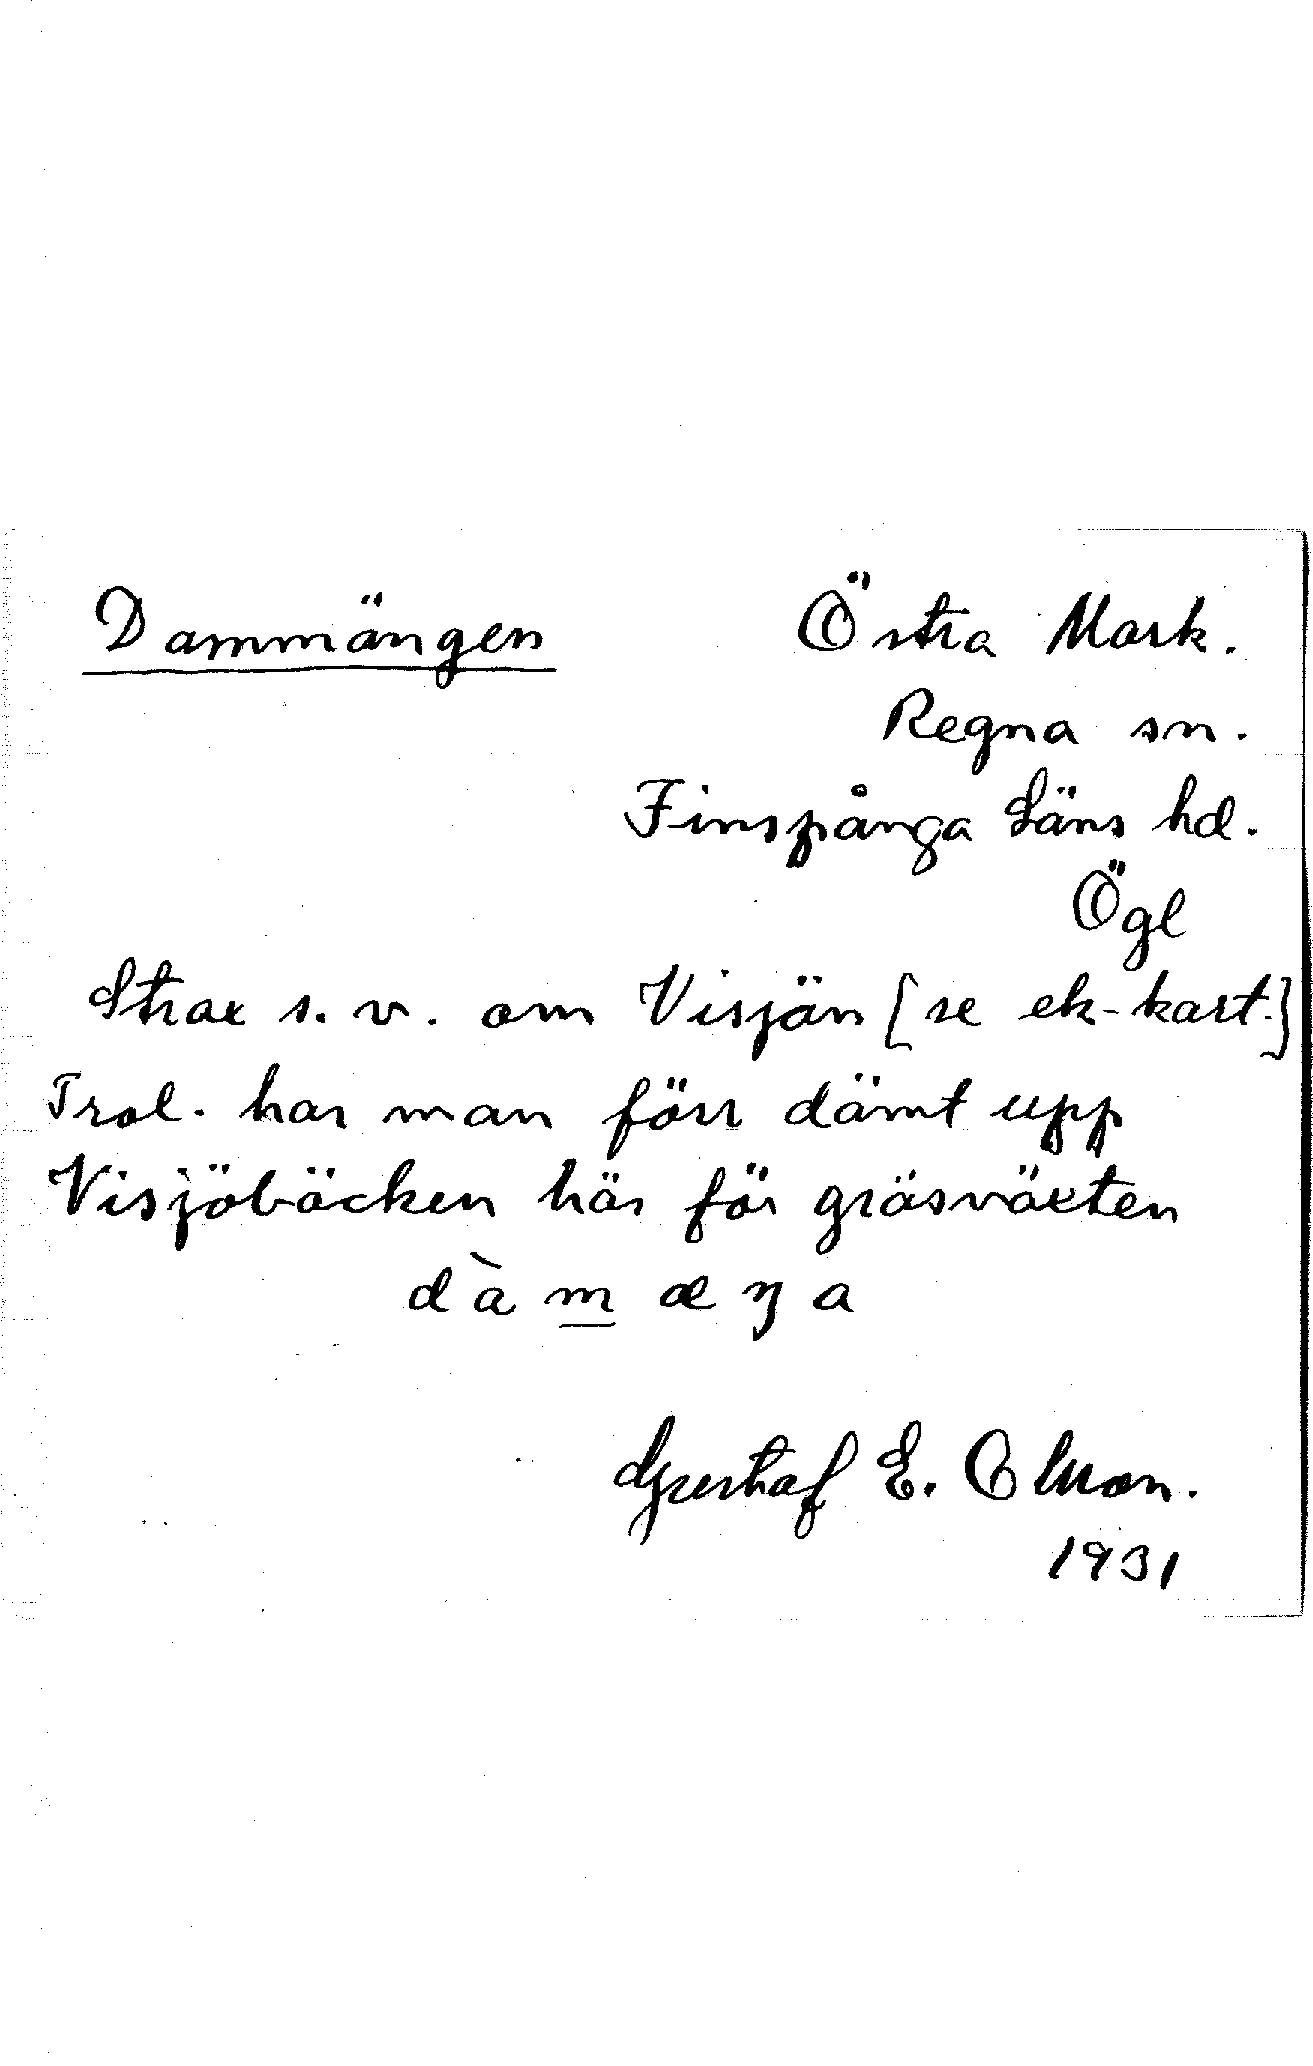 Dammängen Östra Mark.
Regna sn.
Finspånga Läns hd.
Ögl
Strax s.v. om Visjön [se ek-kart.]
Trol. har man förr dämt upp
Visjöbäcken här för gräsväxten
dàm̲æŋa
Gustaf E. Olsson.
1931